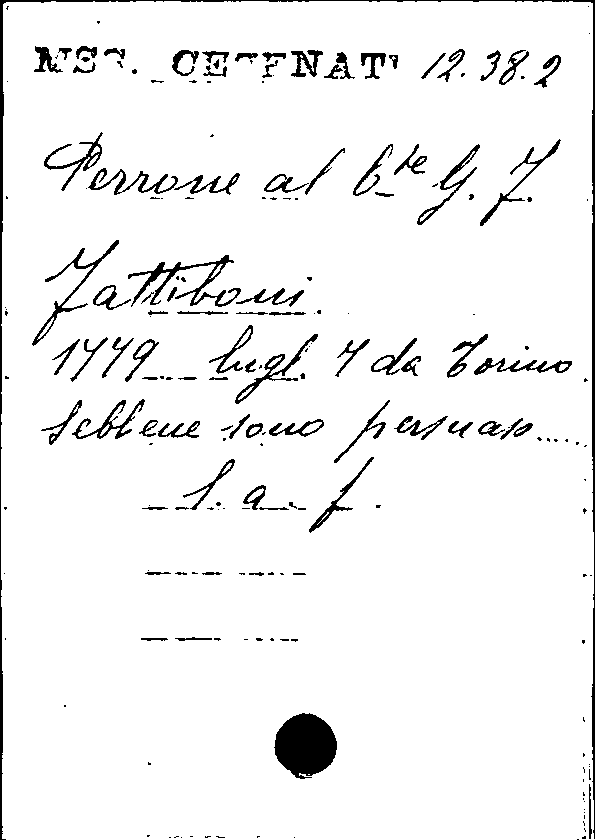 MSS. CESENATI 12.38.2
Perrone al C.te G. F.
Fattiboni
1779 lugl. 7 da Torino
Sebbene sono persuaso.....
l. a. f.